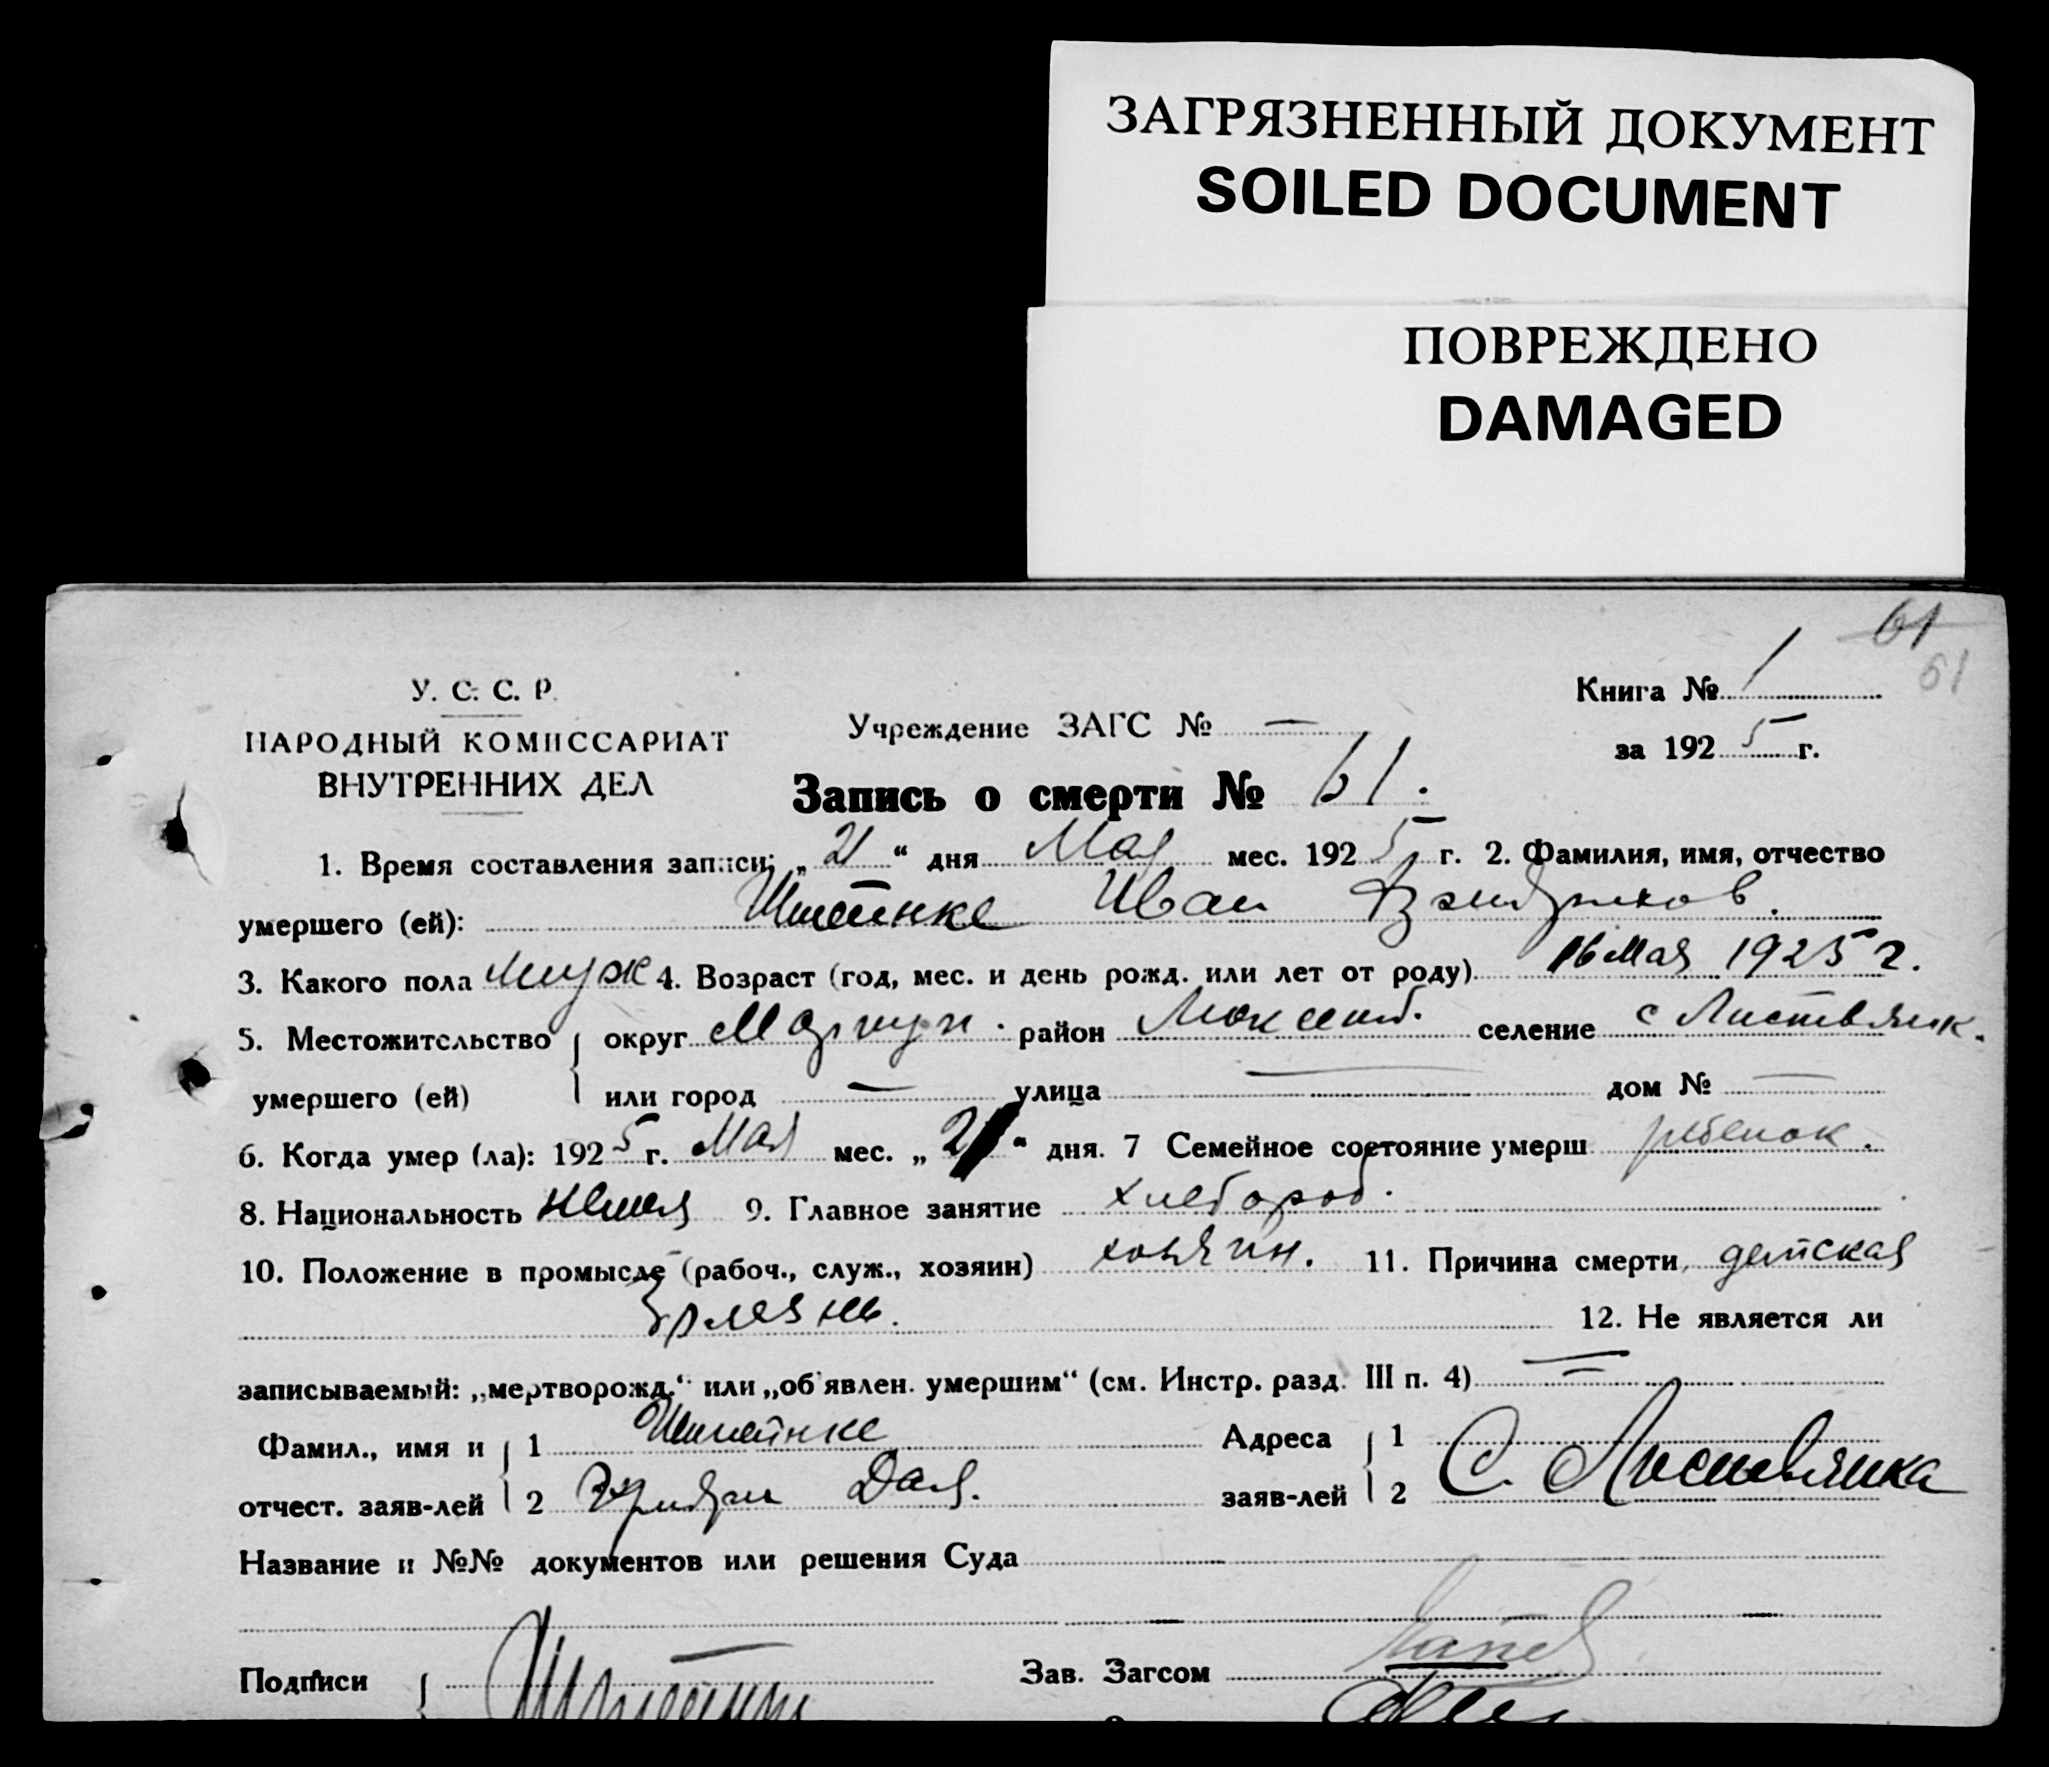 ЗАГРЯЗНЕННЫЙ ДОКУМЕНТ
SOILED DOCUMENT
ПОВРЕЖДЕНО
DAMAGED
61
61
У. С. С. Р.
НАРОДНЫЙ КОМИССАРИАТ
ВНУТРЕННИХ ДЕЛ
Учреждение ЗАГС № —
Книга № 1
за 1925 г.
Запись о смерти № 61.
1. Время составления записи: „21“ дня Мая мес. 1925 г. 2. Фамилия, имя, отчество
умершего (ей): Штейнке Иван
3. Какого пола муж 4. Возраст (год, мес. и день рожд. или лет от роду) 16 Мая 1925 г.
5. Местожительство округ район селение с Листвянк.
умершего (ей) или город — улица — дом № —
6. Когда умер (ла): 1925 г. Мая мес. „21“ дня. 7 Семейное состояние умерш. ребенок.
8. Национальность немец 9. Главное занятие хлебороб.
10. Положение в промысле (рабоч., служ., хозяин) хозяин. 11. Причина смерти, детская
болезнь. 12. Не является ли
записываемый: „мертворожд.“ или „об'явлен. умершим“ (см. Инстр. разд. III п. 4) —
Фамил., имя и 1 Штейнке Адреса 1
отчест. заяв-лей 2 заяв-лей 2 С. Листвянка
Название и №№ документов или решения Суда
Подписи Зав. Загсом